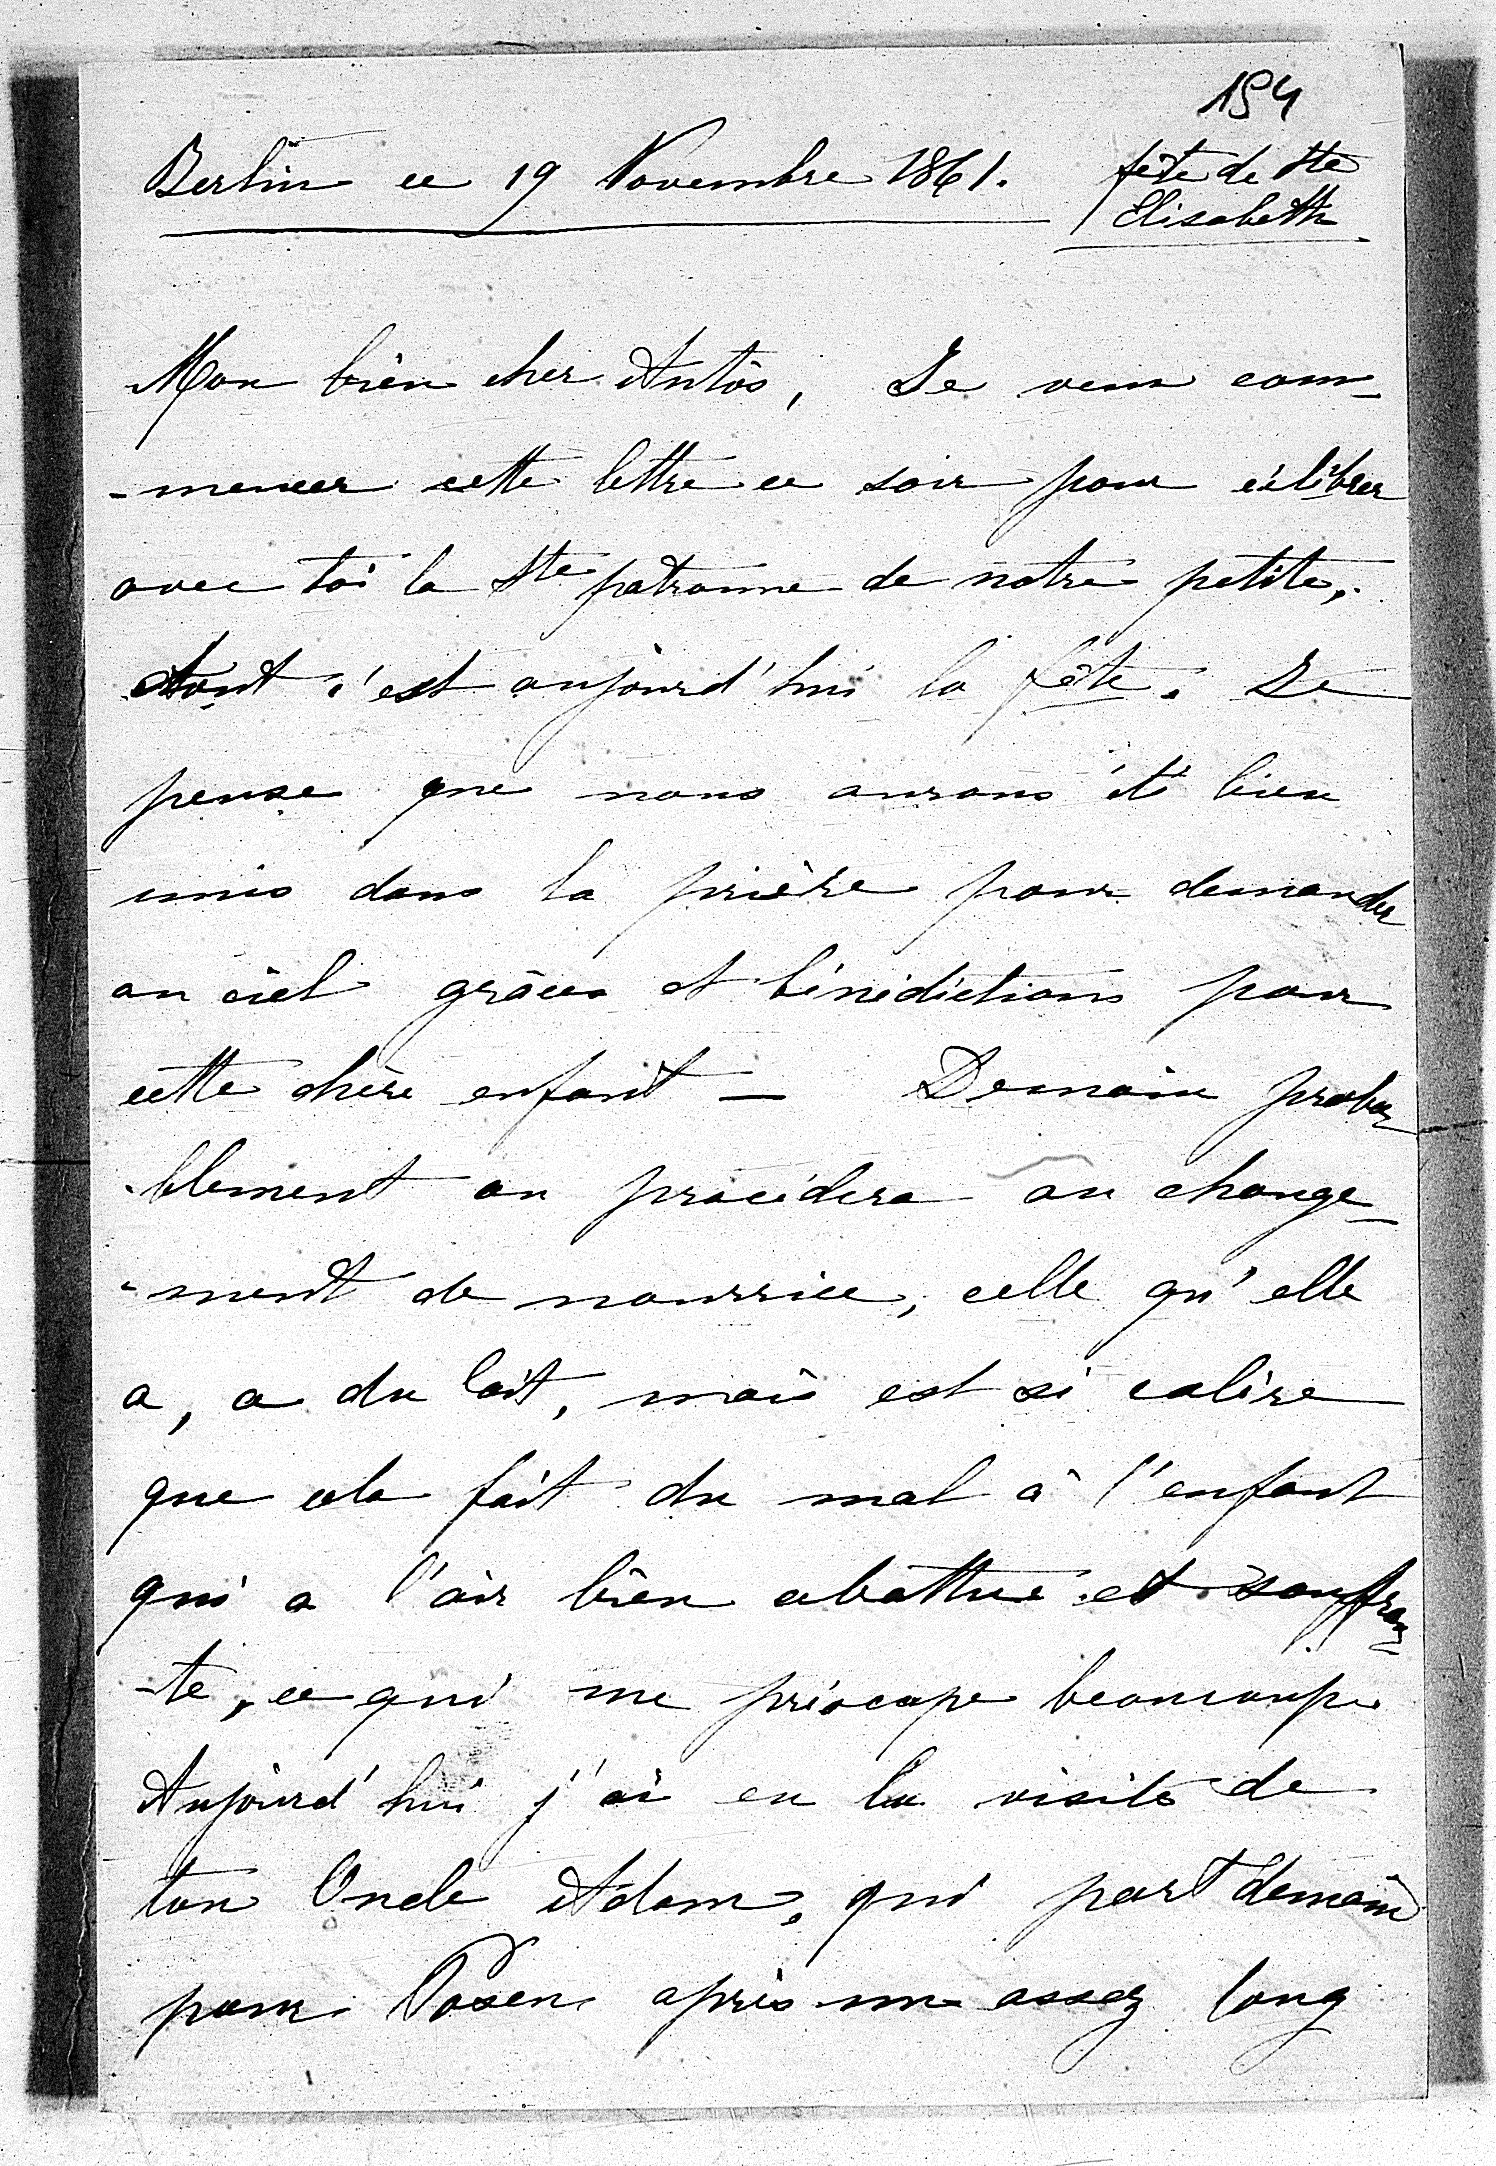 154
Berlin ce 19 Novembre 1861. fête de Ste
Elisabeth
Mon bien cher Antôs, Je veux com-
-mencer cette lettre ce soir pour célébrer
avec toi la Ste patronne de notre petite,
dont c'est aujourd'hui la fête. Je
pense que nous aurons été bien
unis dans la prière pour demander
au ciel grâces et bénédictions pour
cette chère enfant — Demain proba-
-blement on procédera au change-
-ment de nourrice, celle qu'elle
a, a du lait, mais est si colère
que cela fait du mal à l'enfant
qui a l'air bien abattue et souffran-
-te, ce qui me préocupe beaucoup.
Aujourd'hui j'ai eu la visite de
ton Oncle Adam, qui part demain
pour Posen après un assez long